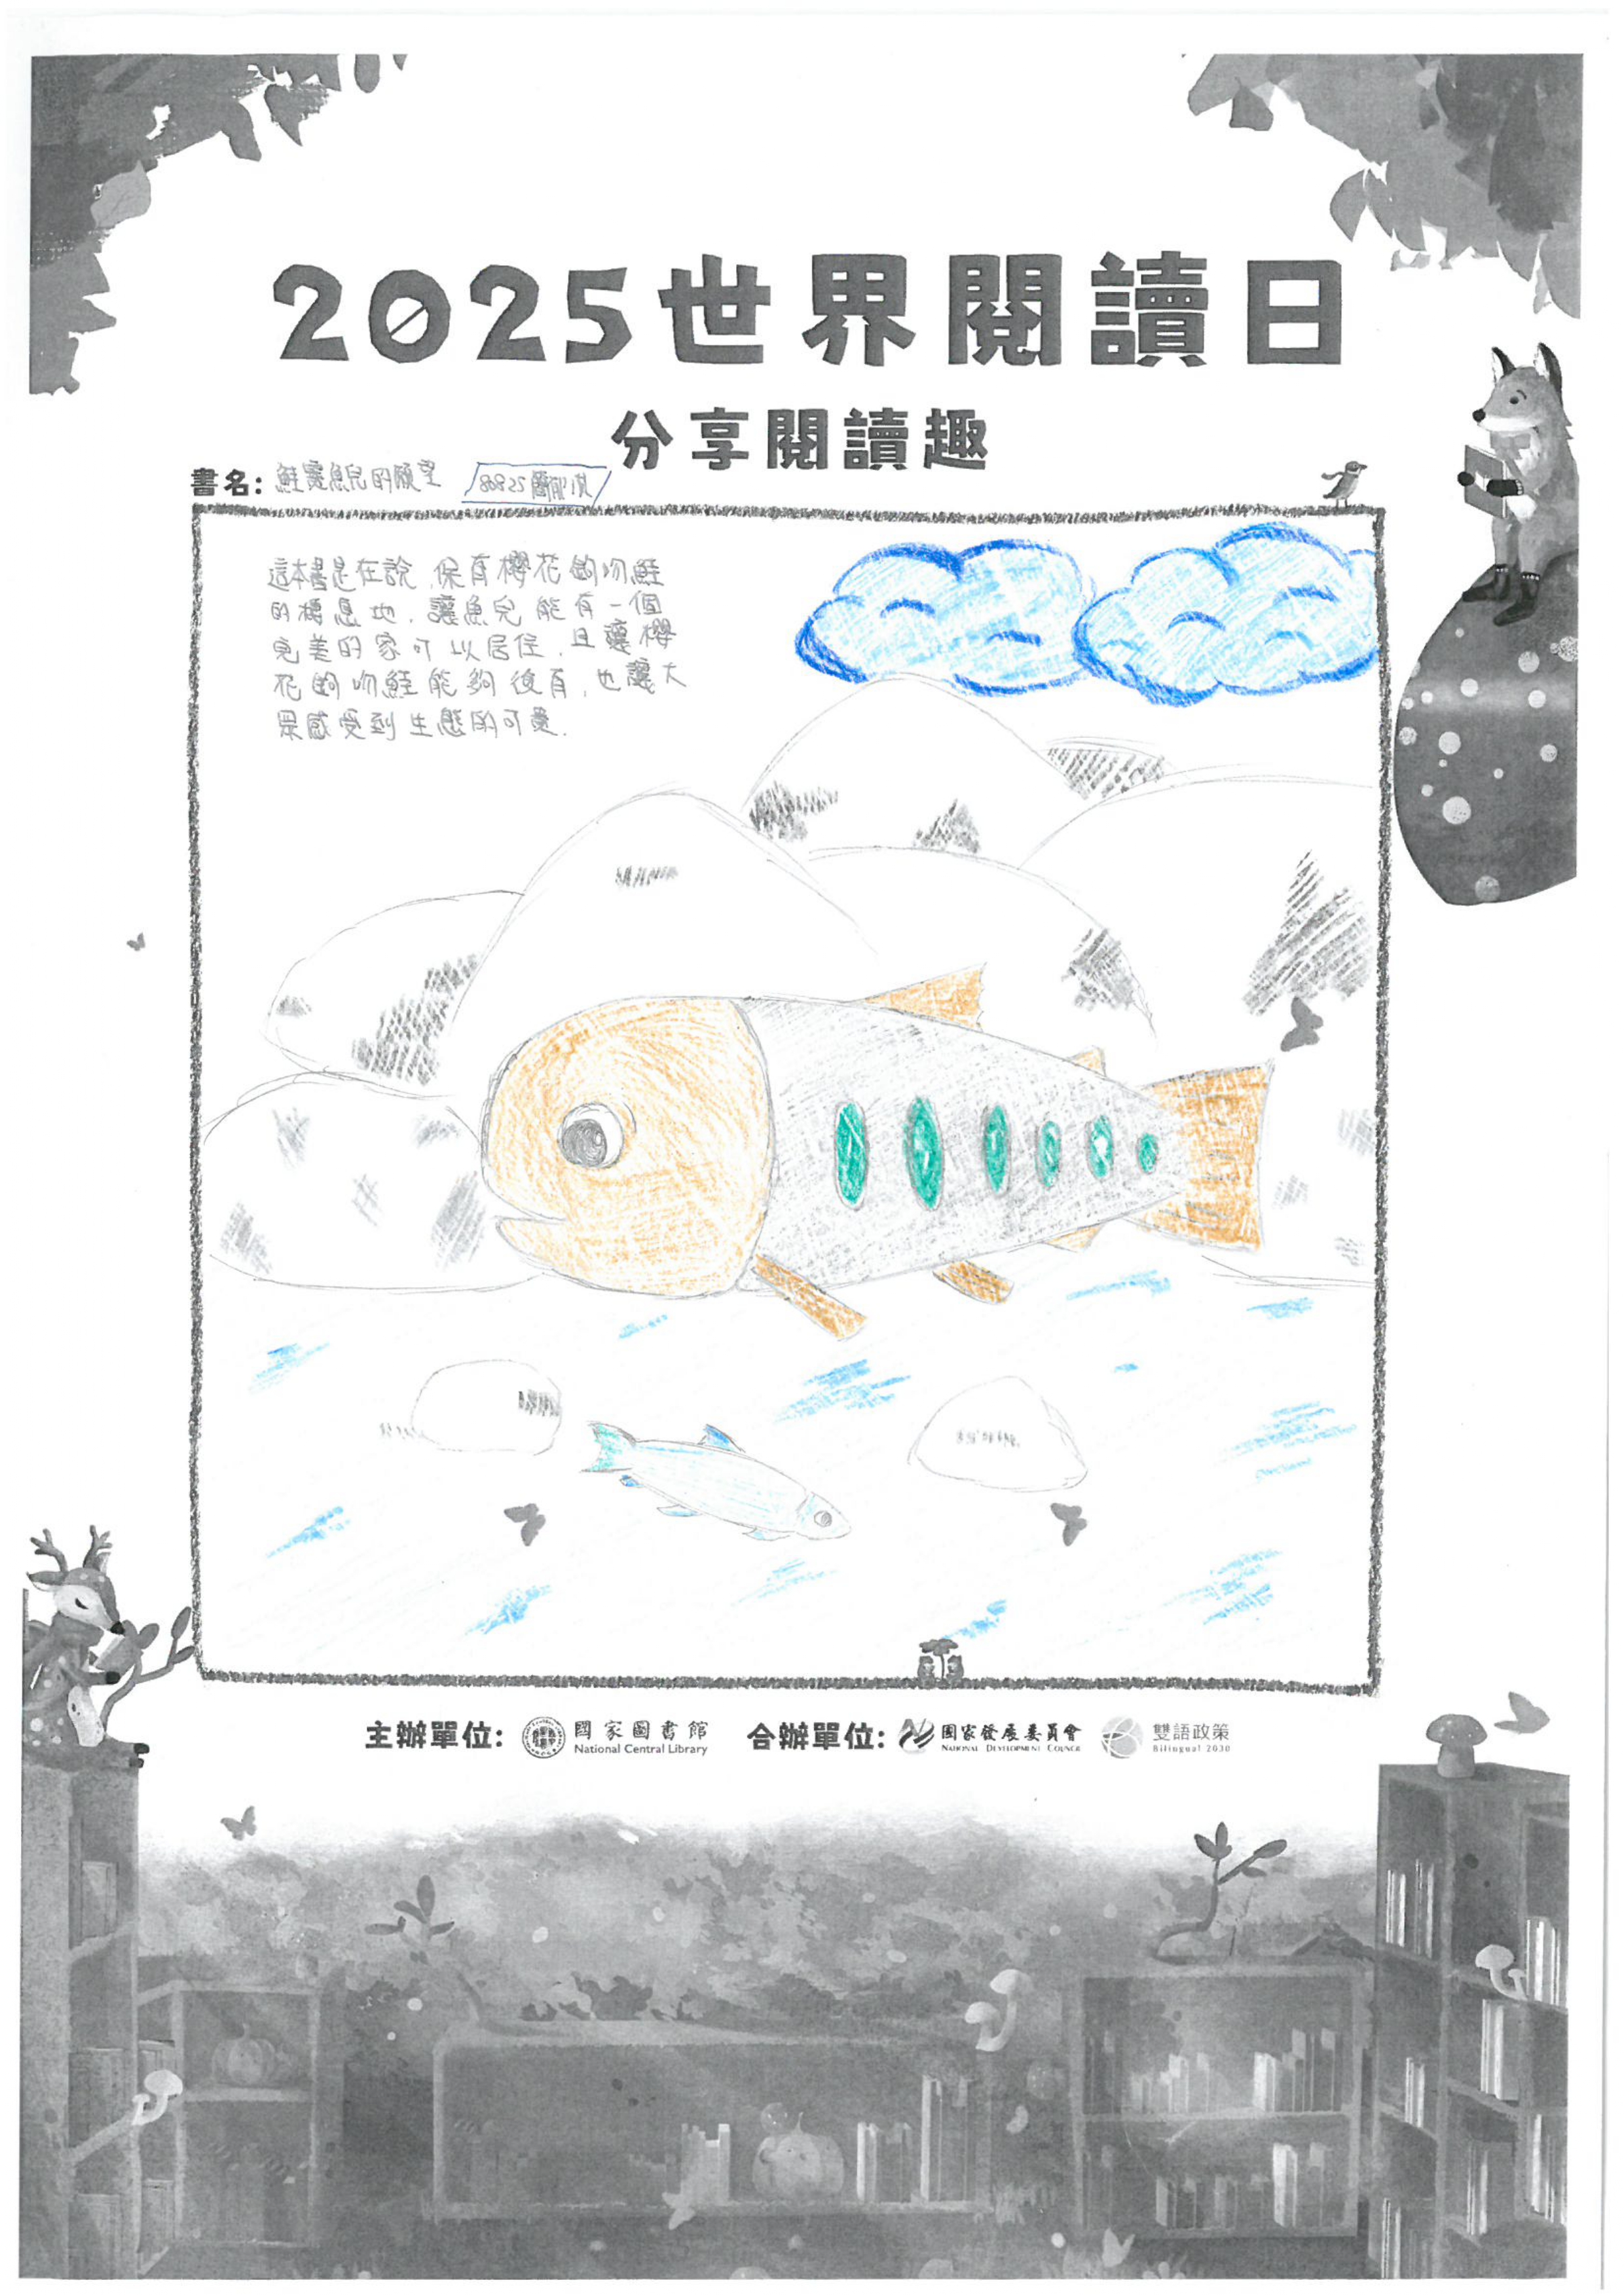 2025世界閱讀日
分享閱讀趣
書名：鮭靈魚兒的願望 80825
這本書是在說，保育櫻花鉤吻鮭
的棲息地，讓魚兒能有一個
完美的家可以居住，且讓櫻
花鉤吻鮭能夠復育，也讓大
眾感受到生態的可愛.
主辦單位：國家圖書館 National Central Library 合辦單位：國家發展委員會 NATIONAL DEVELOPMENT COUNCIL 雙語政策 Bilingual 2030